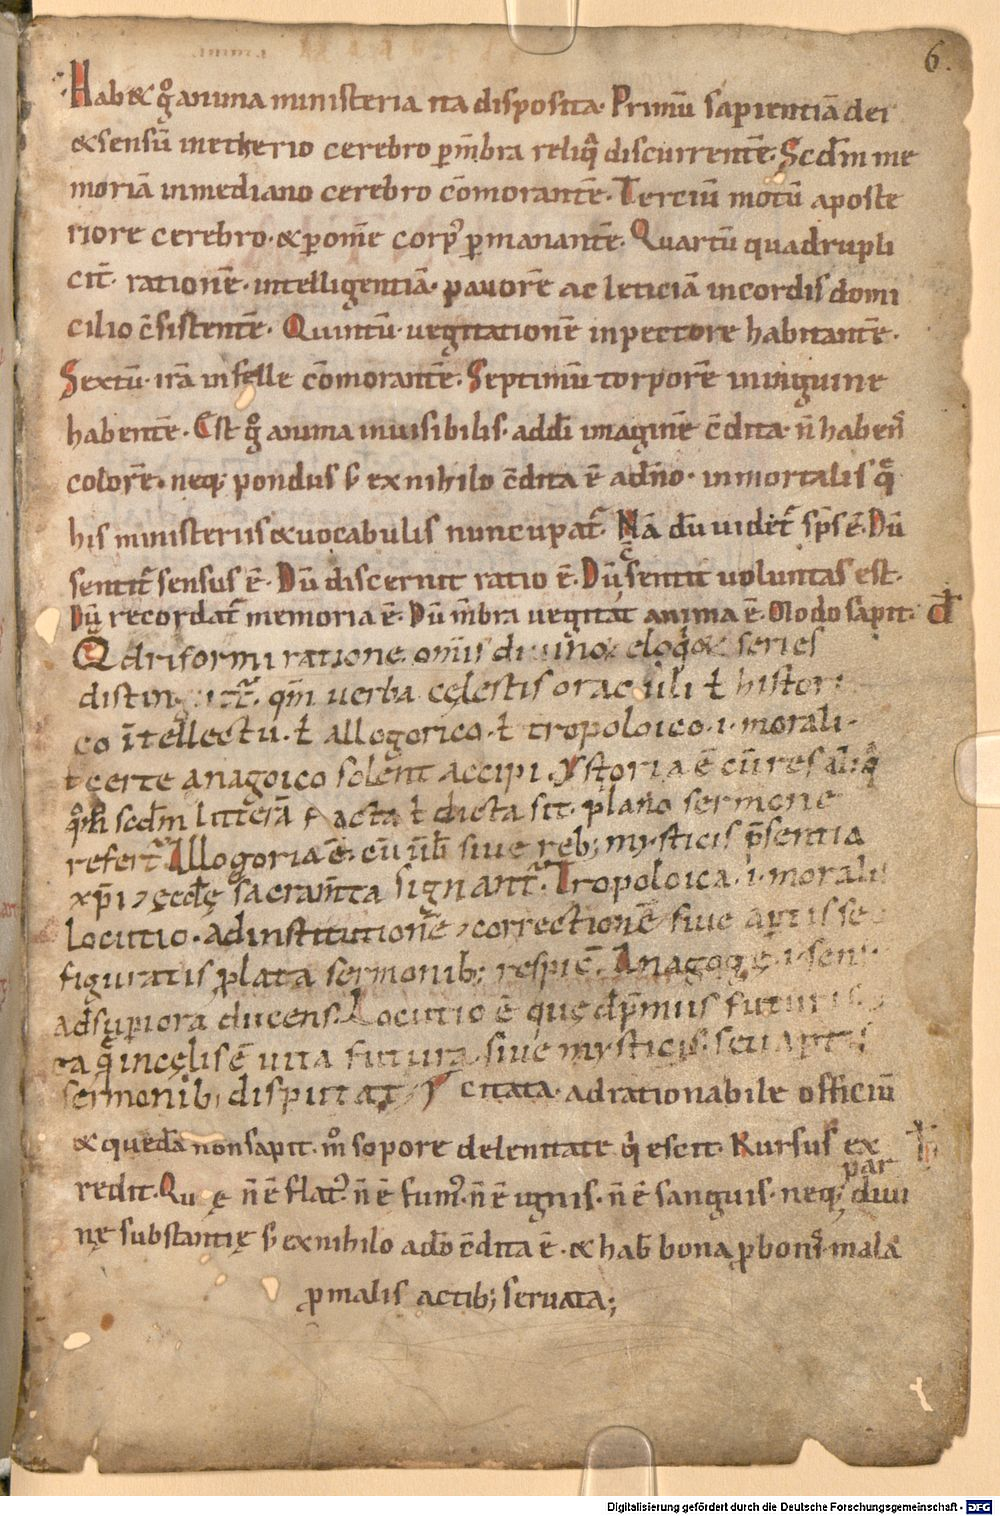 6.
Hab& g̊ anima ministeria ita disposita. Primū sapientiā dei
& sensū in etherio cerebro p̄ mēbra reliq̄ discurrentē. Scdm̄ me
moriā in mediano cerebro cōmorantē. Terciū motū a poste
riore cerebro. & p̄ omē corp' p̄manantē. Quartū quadrupli
cit̄. rationē. intelligentiā. pauorē ac leticiā in cordis domi
cilio c̄sistentē. Quintū. uegitationē in pectore habitantē.
Sextū. irā in felle cōmorantē. Septimū torporē in inguine
habentē. Est g̊ anima inuisibilis. ad dī imaginē c̄dita. n̄ habens
colorē. neq; pondus s; ex nihilo c̄dita ē a dn̄o. inmortalis q̄
his ministeriis & uocabulis nuncupat̄. Nā dū uidet̄ sp̄s ē. Dū
sentit sensus ē. Dū discernit ratio ē. Dū c̄sentit uoluntas est.
Dū recordat̄ memoria ē. Dū mēbra uegitat anima ē. Modo sapit.
Qdriformi ratione om̄is diuinoꝝ eloq̊ꝝ series
distinguit̄. qm̄ uerba cęlestis oraculi ł histori
co intellectu. ł allogorico. ł tropoloico .i. morali.
ł certe anagoico solent accipi. Ystoria ē cū res aliq̄
q̊m̊ scdm̄ litterā facta ł dicta sit. plano sermone
refert̄. Allogoria ē. cū uerb̄ siue reb; mysticis p̄sentia
xp̄i ⁊ ęcclę sacram̄ta signant̄. Tropoloica .i. moralis
locutio. ad institutionē ⁊ correctionē siue aptis seu
figuratis plata sermonib; respic̄. Anagogę .i. sensus
ad supiora ducens. Locutio ē quę d p̄miis futuris
ta q̄ in cęlis ē uita futura. siue mysticis. seu aptis
sermonib; disputat. citata. ad rationabile officiū
& quedā non sapit. m̊ sopore delenitate q̄escit. Rursus ex
par
redit. Quę n̄ ē flat'. n̄ ē fum'. n̄ ē ignis. n̄ ē sanguis. neq; diui
nę substantię s; ex nihilo a dō c̄dita ē. & hab̄ bona p bonis. mala
p malis actib; seruata;
Digitalisierung gefördert durch die Deutsche Forschungsgemeinschaft - DFG